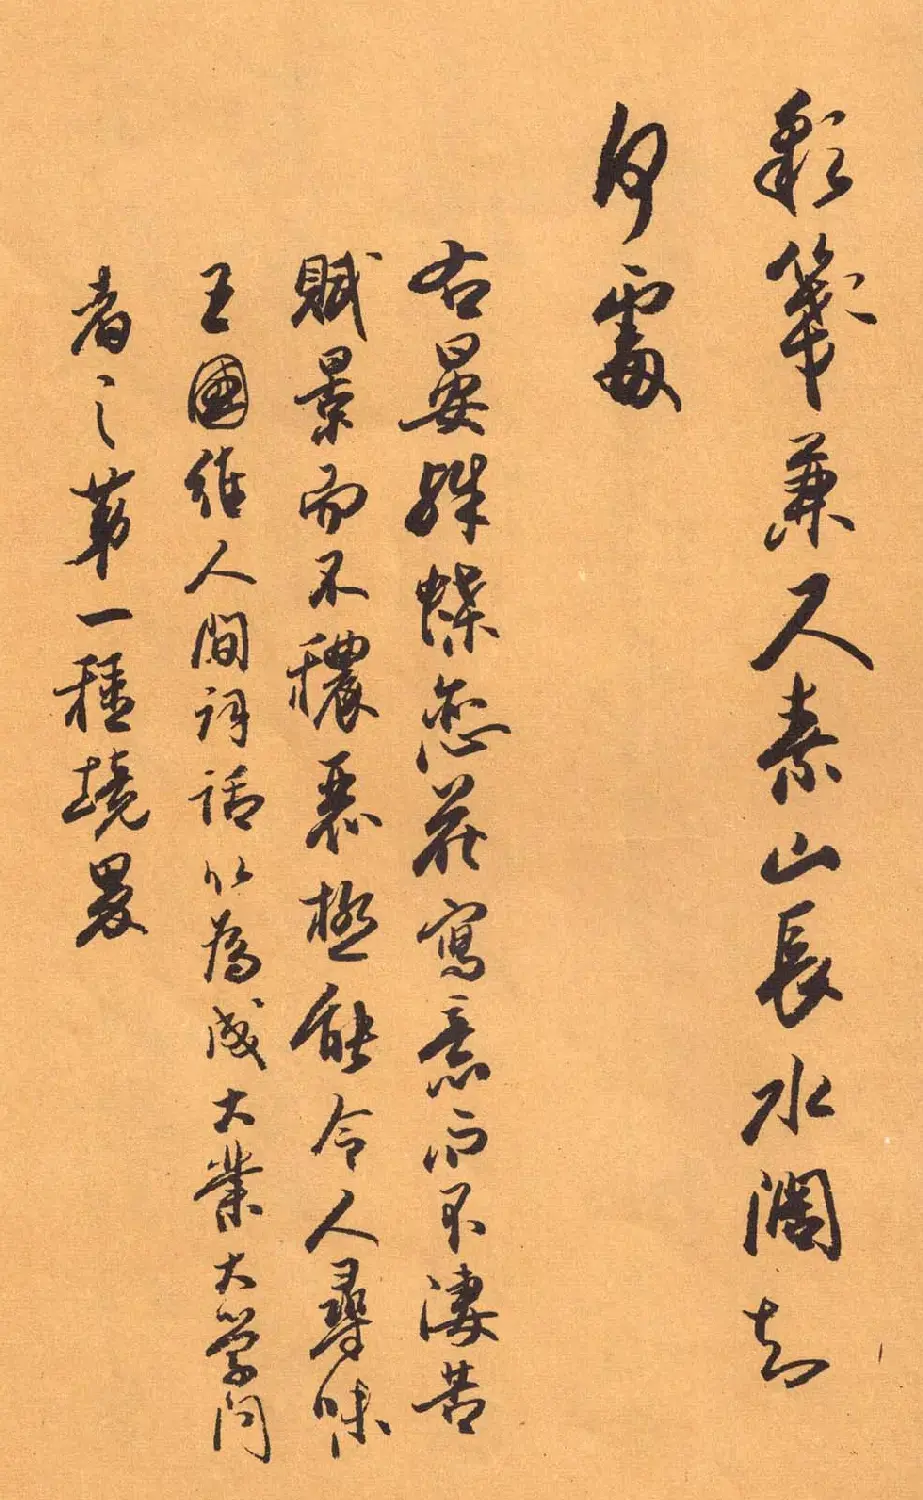 彩箋兼尺素山長水闊知
何處
右晏殊蝶恋花寫意而不淒苦
賦景而不穠極能令人尋味
王國維人間詞話以為成大業大学问
者之第一種境界